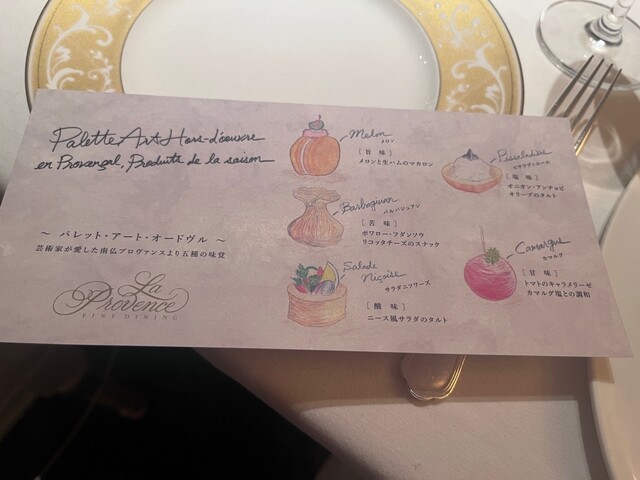 Palette Art Hors-d'œuvre
en Provençal, Produits de la saison
～ パレット・アート・オードヴル ～
芸術家が愛した南仏プロヴァンスより五種の味覚
La
Provence
FINE DINING
Melon
メロン
［旨 味］
メロンと生ハムのマカロン
Barbaguan
バルバジュアン
［苦 味］
ポワロー・フダンソウ
リコッタチーズのスナック
Salade
Niçoise
サラダニソワーズ
［酸 味］
ニース風サラダのタルト
Pissaladière
ピサラディエール
［塩 味］
オニオン・アンチョビ
オリーブのタルト
Camargue
カマルグ
［甘 味］
トマトのキャラメリーゼ
カマルグ塩との調和